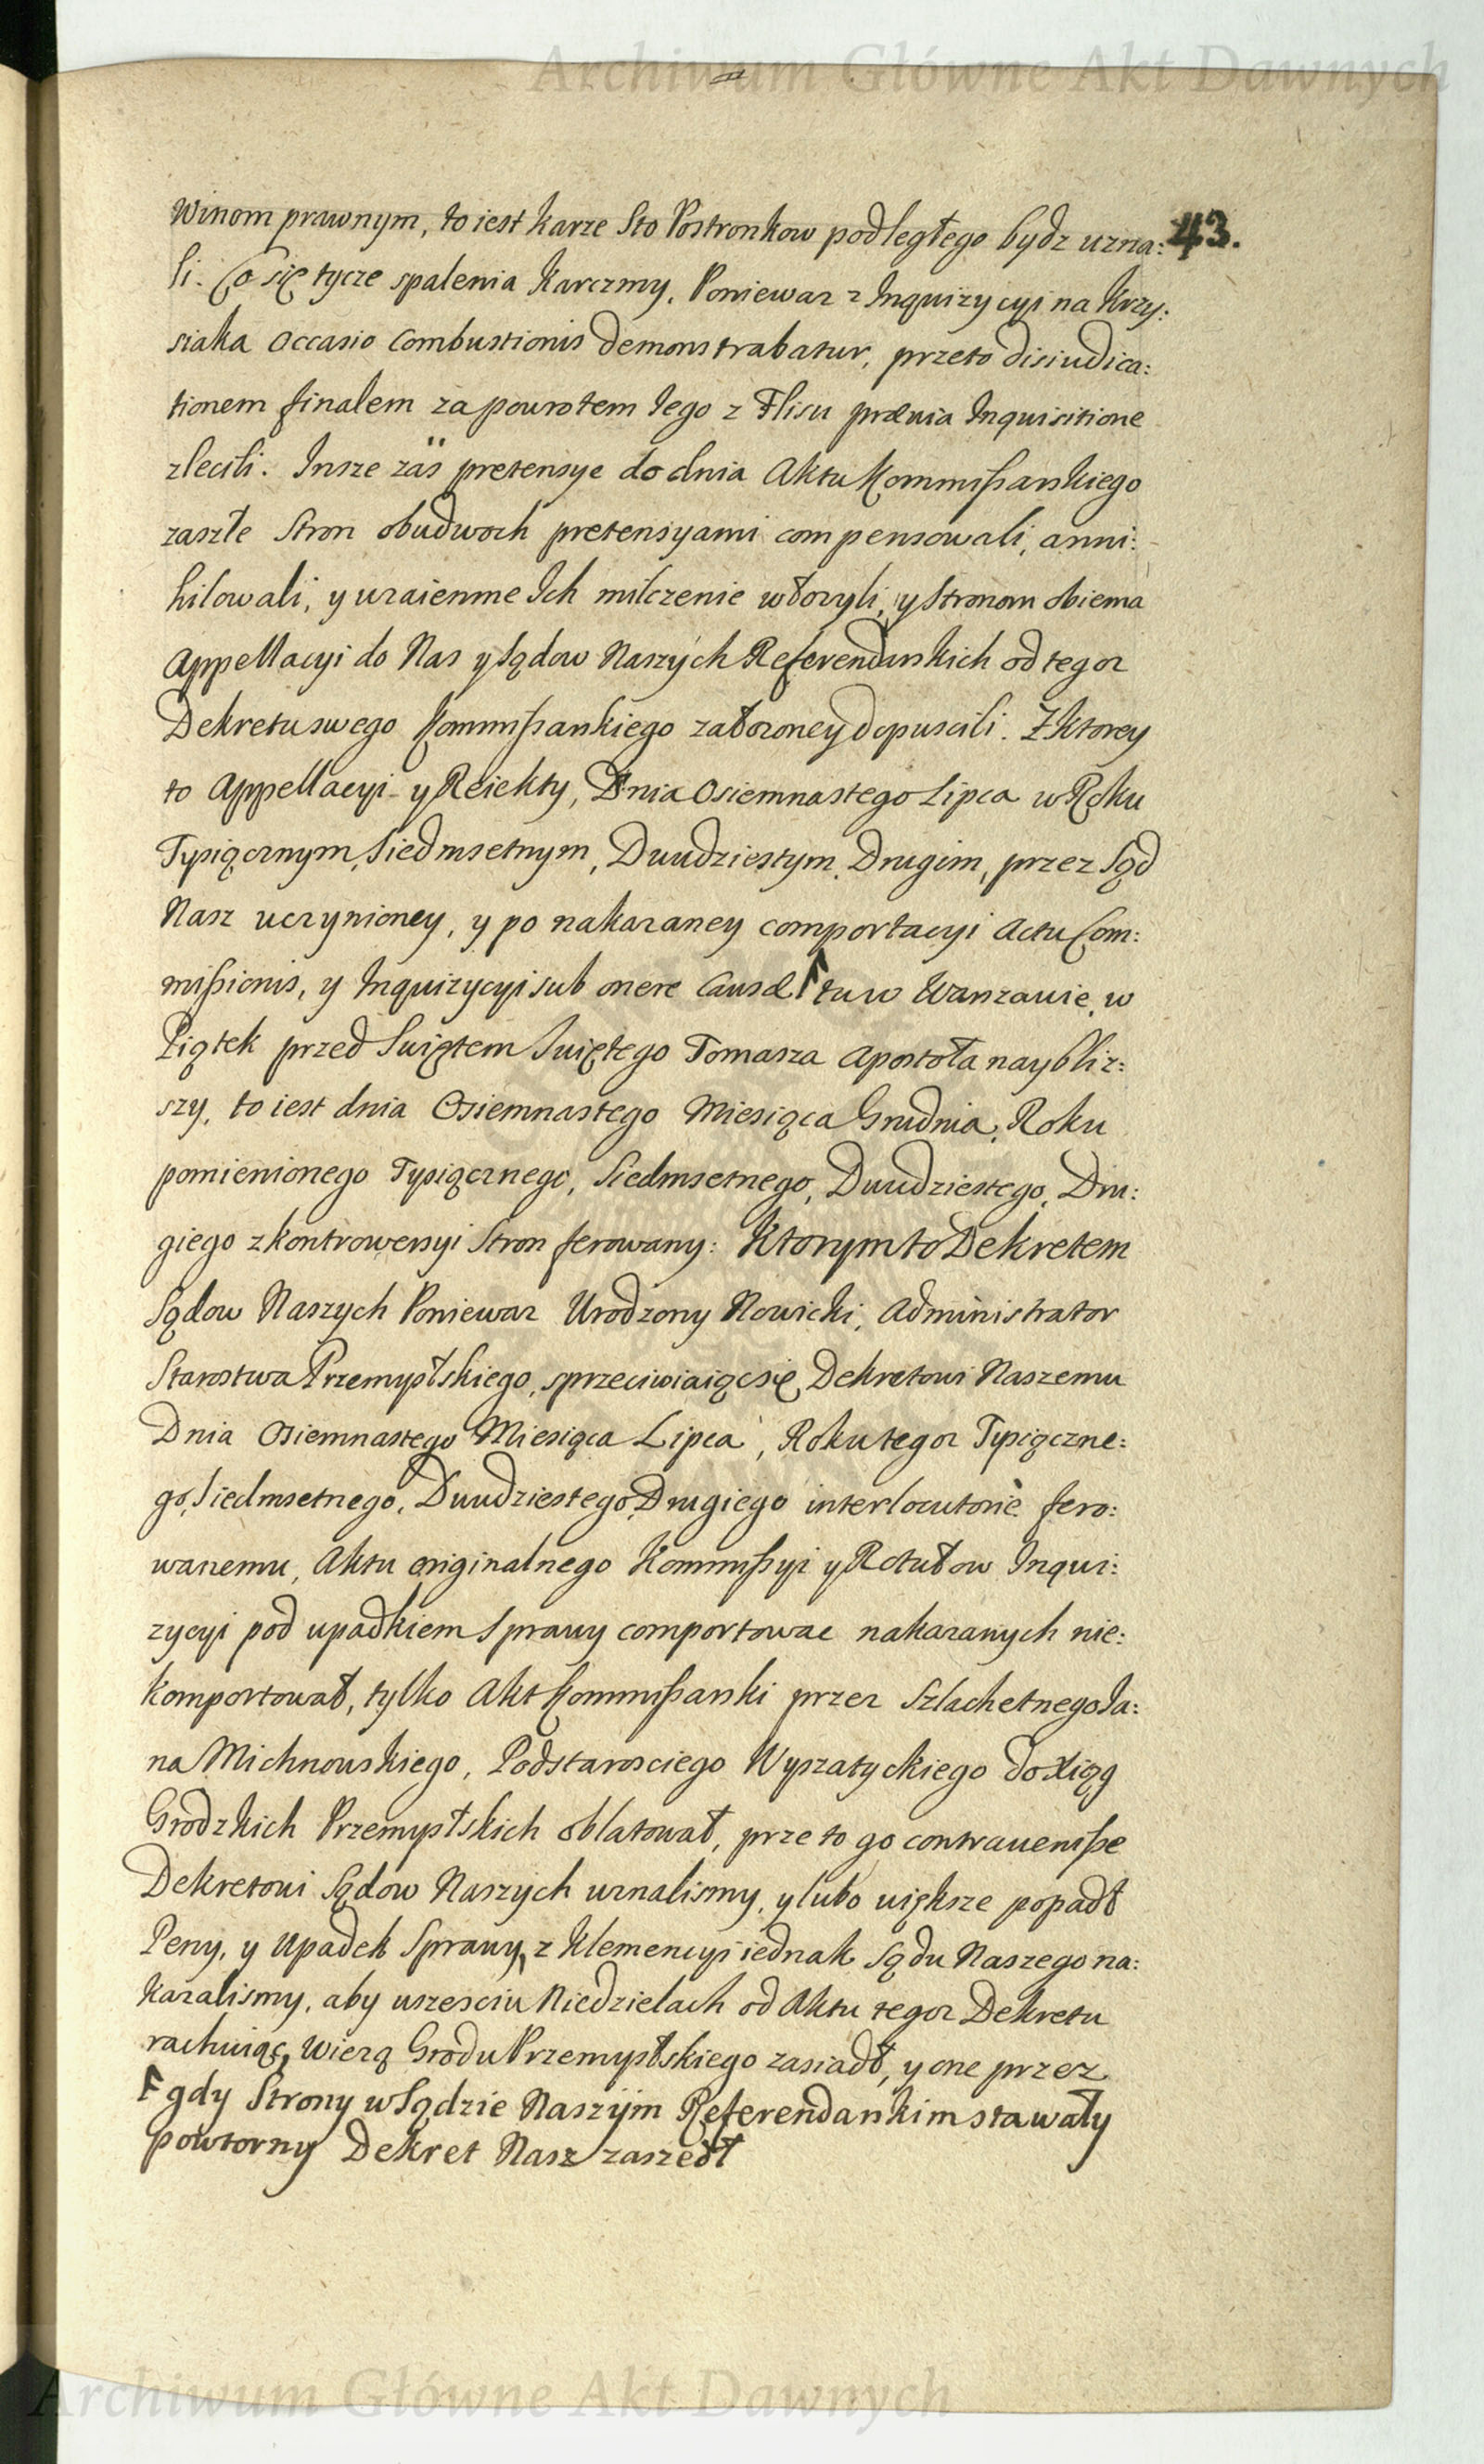 Archiwum Główne Akt Dawnych
43.
Winom prawnym, to iest karze Sto Postronkow podległego bydz uzna:
li. Co się tycze spalenia Karczmy, Poniewaz z Inquizycyi na Krzy:
siaka occasio combustionis demonstrabatur, przeto disiudica:
tionem finalem za powrotem Jego z Flisu prævia Inquisitione
zlecili. Insze zaś pretensye do dnia Aktu Kommißarskiego
zaszłe Stron obudwoch pretensyami compensowali, anni:
hilowali, y wzaiemne Ich milczenie włozyli, y Stronom obiema
Appellacyi do Nas y Sądow Naszych Referendarskich od tegoz
Dekretu swego Kommißarskiego załozoney dopuscili. Z ktorey
to Appellacyi y Reiekty, Dnia Osiemnastego Lipca w Roku
Tysiącznym, Siedmsetnym, Dwudziestym, Drugim, przez Sąd
Nasz uczynioney, y po nakazaney comportacyi Actu Com:
mißionis, y Inquizycyi sub onere Causæ Ꞙ tu w Warszawie, w
Piątek przed Swiętem Swiętego Tomasza Apostoła naybliz:
szy, to iest dnia Osiemnastego Miesiąca Grudnia, Roku
pomienionego Tysiącznego, Siedmsetnego, Dwudziestego, Dru:
giego z kontrowersyi Stron ferowany: Ktorym to Dekretem
Sądow Naszych Poniewaz Urodzony Nowicki, Administrator
Starostwa Przemyslskiego, sprzeciwiaiąc się Dekretowi Naszemu
Dnia Osiemnastego Miesiąca Lipca, Roku tegoz Tysiączne:
go, Siedmsetnego, Dwudziestego, Drugiego interlocutoriè fero:
wanemu, Aktu originalnego Kommißyi y Rotułow Inqui:
zycyi pod upadkiem Sprawy comportowac nakazanych nie:
komportował, tylko Akt Kommißarski przez Szlachetnego Ja:
na Michnowskiego, Podstarosciego Wyszatyckiego do Xiąg
Grodzkich Przemysłskich oblatował, przeto go contraveniße
Dekretowi Sądow Naszych uznalismy, y lubo większe popadł
Peny, y Upadek Sprawy, z Klemencyi iednak Sądu Naszego na:
kazalismy, aby w szesciu Niedzielach od Aktu tegoz Dekretu
rachuiąc, Wiezą Grodu Przemysłskiego zasiadł, y one przez
Ꞙ gdy Strony w Sądzie Naszym Referendarskim stawały
powtorny Dekret Nasz zaszedł
Archiwum Główne Akt Dawnych